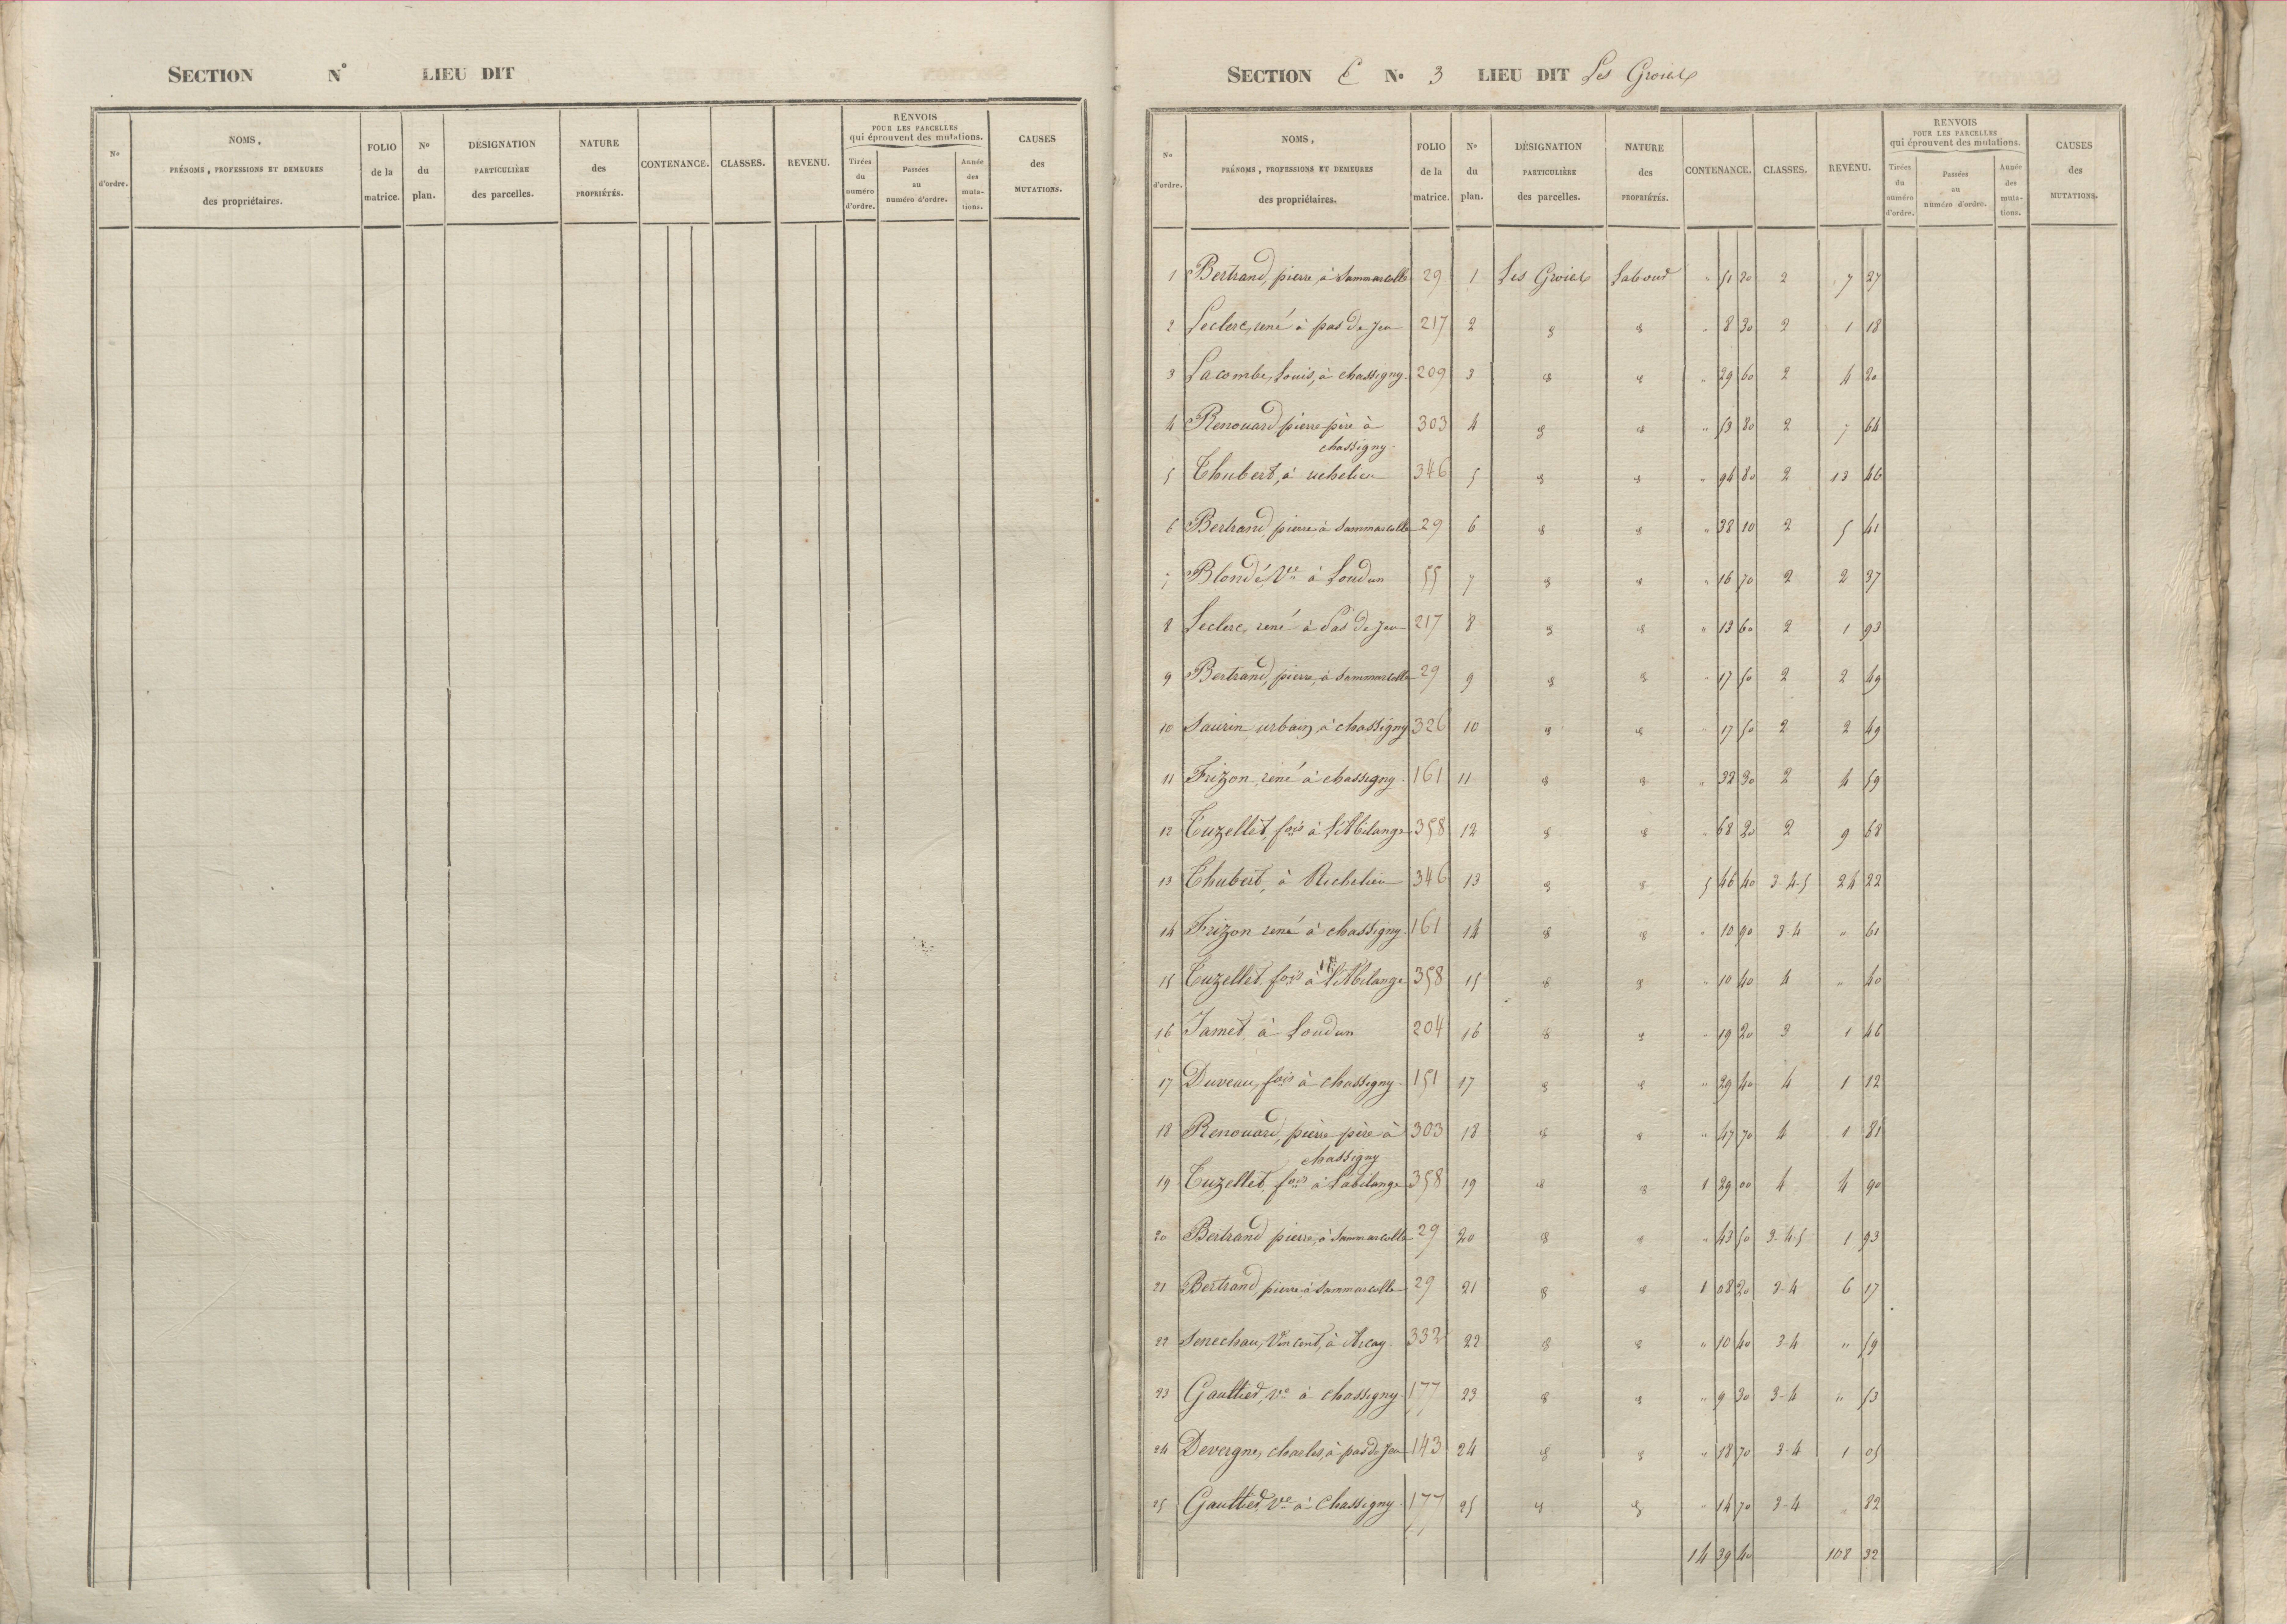 SECTION N° LIEU DIT
N° d'ordre.
NOMS, PRÉNOMS, PROFESSIONS ET DEMEURES des propriétaires.
FOLIO de la matrice.
N° du plan.
DÉSIGNATION PARTICULIÈRE des parcelles.
NATURE des PROPRIÉTÉS.
CONTENANCE.
CLASSES.
REVENU.
RENVOIS POUR LES PARCELLES qui éprouvent des mutations.
Tirées du numéro d'ordre.
Passées au numéro d'ordre.
Année des mutations.
CAUSES des MUTATIONS.
SECTION E N° 3 LIEU DIT Les Groies
N° d'ordre.
NOMS, PRÉNOMS, PROFESSIONS ET DEMEURES des propriétaires.
FOLIO de la matrice.
N° du plan.
DÉSIGNATION PARTICULIÈRE des parcelles.
NATURE des PROPRIÉTÉS.
CONTENANCE.
CLASSES.
REVENU.
RENVOIS POUR LES PARCELLES qui éprouvent des mutations.
Tirées du numéro d'ordre.
Passées au numéro d'ordre.
Année des mutations.
CAUSES des MUTATIONS.
1 Bertrand, pierre, à Sammarcolle 29 1 Les Groies Labour " 51 20 2 7 27
2 Leclerc, rené à pas de Jeu 217 2 " " " 8 30 2 1 18
3 Lacombe, Louis, à chassigny 209 3 " " " 29 60 2 4 20
4 Renouard pierre père à 303 4 " " " 53 80 2 7 64
chassigny
5 Thubert, à richelieu 346 5 " " " 94 80 2 13 46
6 Bertrand, pierre à Sammarcolle 29 6 " " " 38 10 2 5 41
7 Blondé, Ve à Loudun 55 7 " " " 16 70 2 2 37
8 Leclerc, rené à Pas de Jeu 217 8 " " " 13 60 2 1 93
9 Bertrand, pierre, à Sammarcolle 29 9 " " " 17 50 2 2 49
10 Saurin urbain, à chassigny 326 10 " " " 17 50 2 2 49
11 Frizon, rené à chassigny 161 11 " " " 32 30 2 4 59
12 Tuzellet, fois à l'Abilange 358 12 " " " 68 20 2 9 68
13 Thubert, à Richelieu 346 13 " " 5 46 40 3-4-5 24 22
14 Frizon rené à chassigny 161 14 " " " 10 90 3-4 " 61
15 Tuzellet, fois à l'Abilange 358 15 " " " 10 40 4 " 40
16 Jamet, à Loudun 204 16 " " " 19 20 3 1 46
17 Duveau, fois à chassigny 151 17 " " " 29 40 4 1 12
18 Renouard, pierre père à 303 18 " " " 47 70 4 1 81
chassigny
19 Tuzellet, fois à Labilange 358 19 " " 1 29 00 4 4 90
20 Bertrand pierre, à Sammarcolle 29 20 " " " 43 50 3-4-5 1 93
21 Bertrand, pierre à Sammarcolle 29 21 " " 1 08 20 3-4 6 17
22 Senechau, Vincent, à Arcay 332 22 " " " 10 40 3-4 " 59
23 Gaultier, Ve à chassigny 177 23 " " " 9 30 3-4 " 53
24 Devergne, charles, à pas de Jeu 143 24 " " " 18 70 3-4 1 05
25 Gaultier, Ve à Chassigny 177 25 " " " 14 70 3-4 " 82
14 39 40 108 32